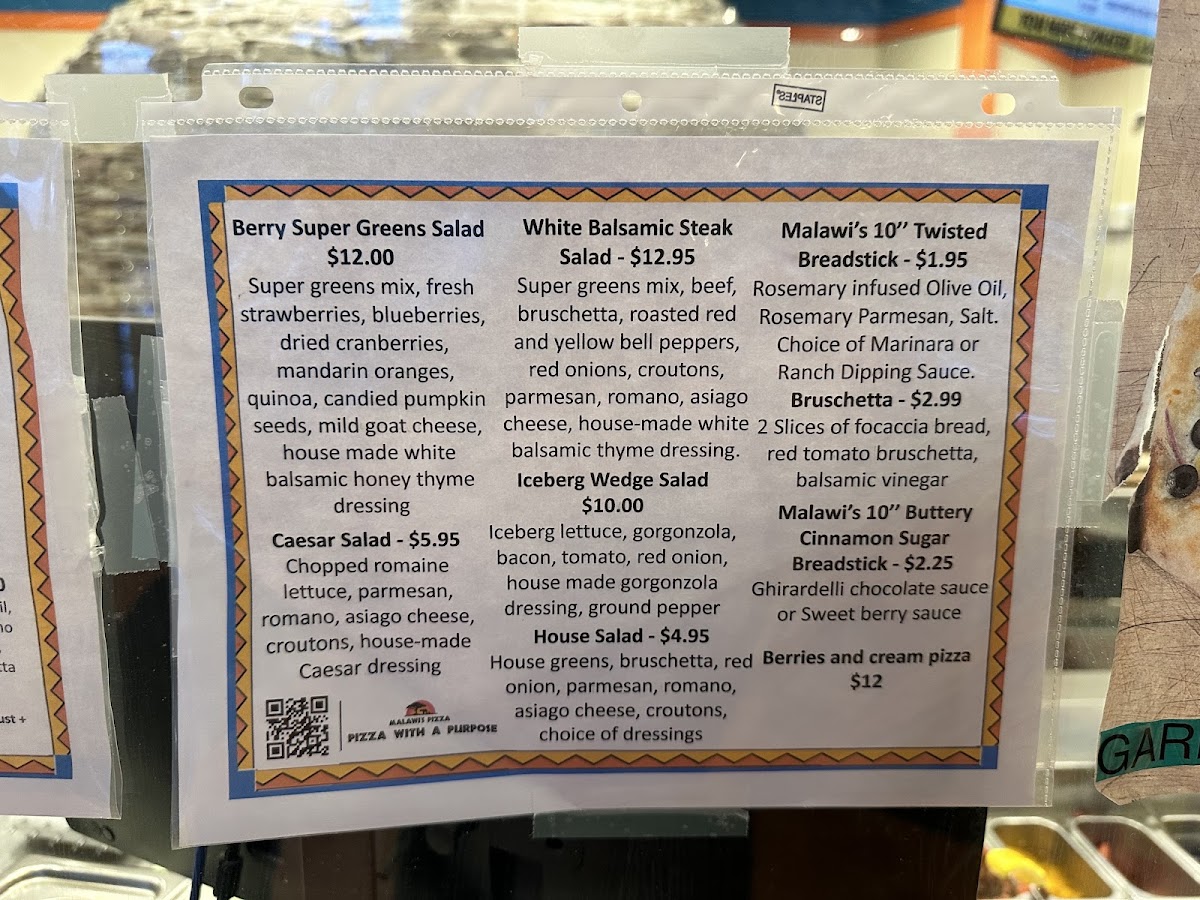 STAPLES®
Berry Super Greens Salad
$12.00
Super greens mix, fresh
strawberries, blueberries,
dried cranberries,
mandarin oranges,
quinoa, candied pumpkin
seeds, mild goat cheese,
house made white
balsamic honey thyme
dressing
Caesar Salad - $5.95
Chopped romaine
lettuce, parmesan,
romano, asiago cheese,
croutons, house-made
Caesar dressing
MALAWI'S PIZZA
PIZZA WITH A PURPOSE
White Balsamic Steak
Salad - $12.95
Super greens mix, beef,
bruschetta, roasted red
and yellow bell peppers,
red onions, croutons,
parmesan, romano, asiago
cheese, house-made white
balsamic thyme dressing.
Iceberg Wedge Salad
$10.00
Iceberg lettuce, gorgonzola,
bacon, tomato, red onion,
house made gorgonzola
dressing, ground pepper
House Salad - $4.95
House greens, bruschetta, red
onion, parmesan, romano,
asiago cheese, croutons,
choice of dressings
Malawi's 10’’ Twisted
Breadstick - $1.95
Rosemary infused Olive Oil,
Rosemary Parmesan, Salt.
Choice of Marinara or
Ranch Dipping Sauce.
Bruschetta - $2.99
2 Slices of focaccia bread,
red tomato bruschetta,
balsamic vinegar
Malawi’s 10’’ Buttery
Cinnamon Sugar
Breadstick - $2.25
Ghirardelli chocolate sauce
or Sweet berry sauce
Berries and cream pizza
$12
GAR